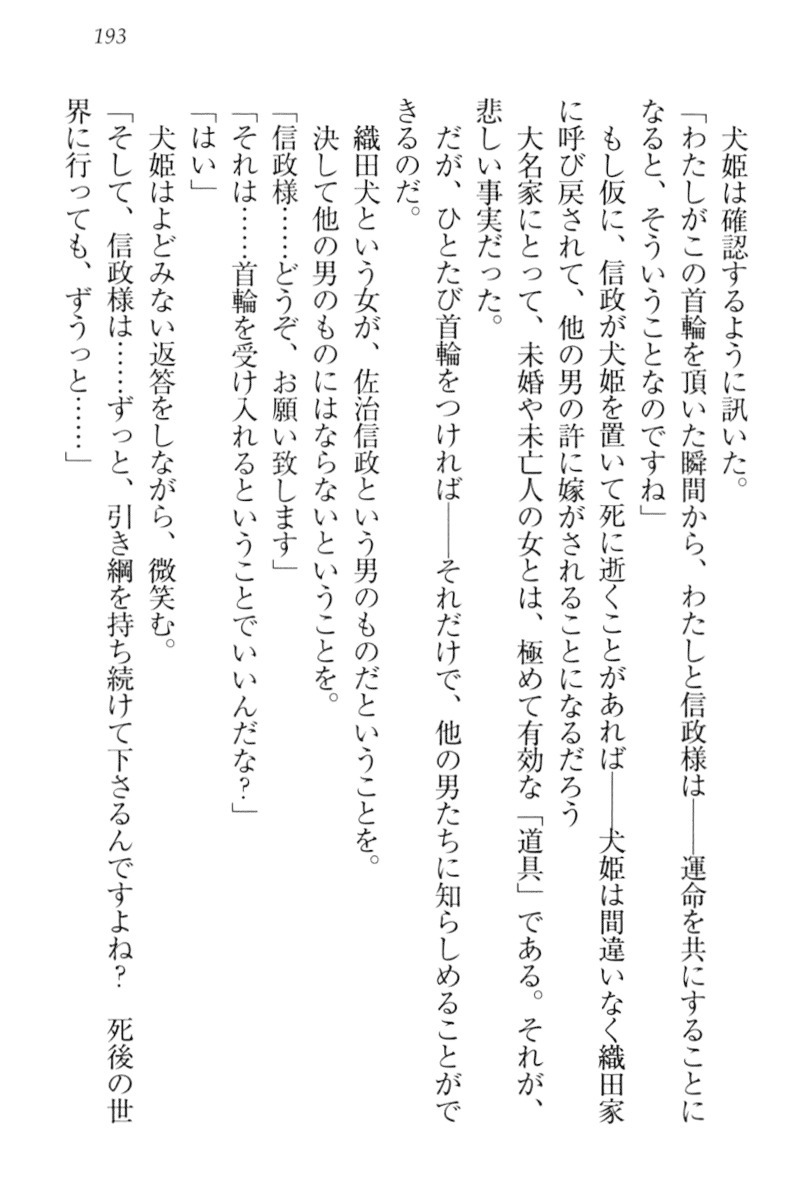 193
犬姫は確認するように訊いた。
「わたしがこの首輪を頂いた瞬間から、わたしと信政様は――運命を共にすることに
なると、そういうことなのですね」
もし仮に、信政が犬姫を置いて死に逝くことがあれば――犬姫は間違いなく織田家
に呼び戻されて、他の男の許に嫁がされることになるだろう
大名家にとって、未婚や未亡人の女とは、極めて有効な「道具」である。それが、
悲しい事実だった。
だが、ひとたび首輪をつければ――それだけで、他の男たちに知らしめることがで
きるのだ。
織田犬という女が、佐治信政という男のものだということを。
決して他の男のものにはならないということを。
「信政様……どうぞ、お願い致します」
「それは……首輪を受け入れるということでいいんだな？」
「はい」
犬姫はよどみない返答をしながら、微笑む。
「そして、信政様は……ずっと、引き綱を持ち続けて下さるんですよね？　死後の世
界に行っても、ずうっと……」